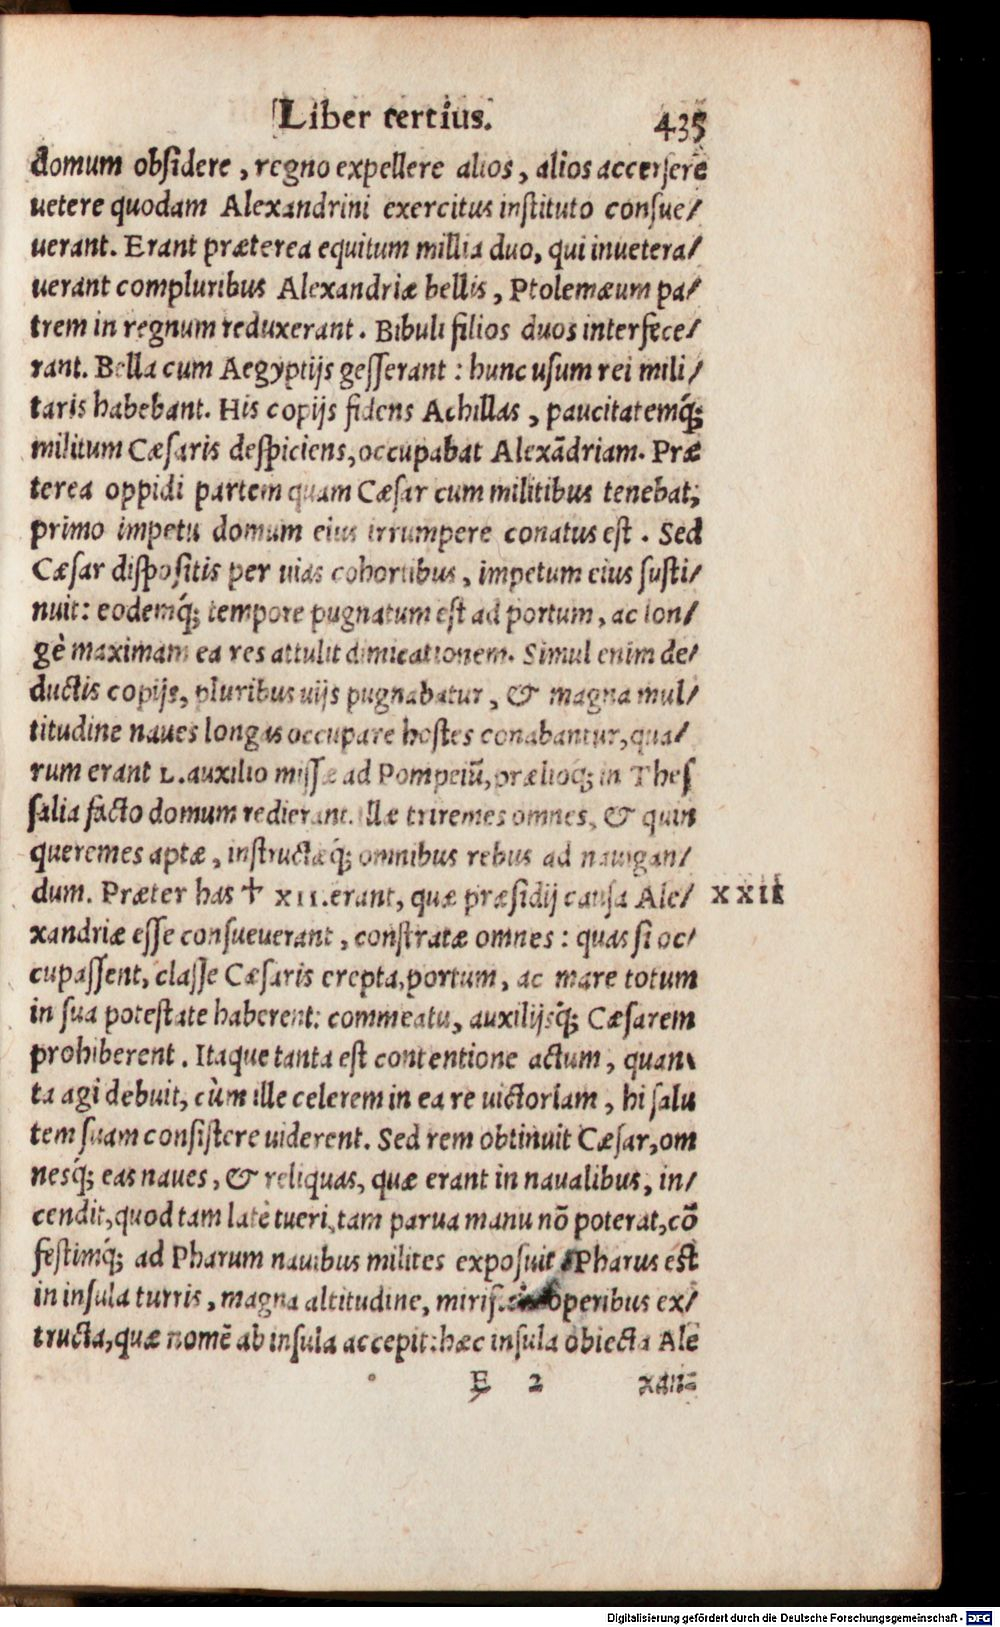 Liber tertius. 435
domum obsidere, regno expellere alios, alios accersere
uetere quodam Alexandrini exercitus instituto consue/
uerant. Erant præterea equitum millia duo, qui inuetera/
uerant compluribus Alexandriæ bellis, Ptolemæum pa/
trem in regnum reduxerant. Bibuli filios duos interfece/
rant. Bella cum Aegyptijs gesserant: hunc usum rei mili/
taris habebant. His copijs fidens Achillas, paucitatemq́;
militum Cæsaris despiciens, occupabat Alexādriam. Præ
terea oppidi partem quam Cæsar cum militibus tenebat;
primo impetu domum eius irrumpere conatus est. Sed
Cæsar dispositis per uias cohortibus, impetum eius susti/
nuit: eodemq́; tempore pugnatum est ad portum, ac lon/
gè maximam ea res attulit dimicationem. Simul enim de/
ductis copijs, pluribus uijs pugnabatur, & magna mul/
titudine naues longas occupare hostes conabantur, qua/
rum erant L. auxilio missæ ad Pompeiū, prælioq́; in Thes
salia facto domum redierant. Illæ triremes omnes, & quin
queremes aptæ, instructæq́; omnibus rebus ad nauigan/
dum. Præter has † XII. erant, quæ præsidij causa Ale/ XXII
xandriæ esse consueuerant, constratæ omnes: quas si oc/
cupassent, classe Cæsaris erepta, portum, ac mare totum
in sua potestate haberent: commeatu, auxilijsq́; Cæsarem
prohiberent. Itaque tanta est contentione actum, quan
ta agi debuit, cùm ille celerem in ea re uictoriam, hi salu
tem suam consistere uiderent. Sed rem obtinuit Cæsar, om
nesq́; eas naues, & reliquas, quæ erant in naualibus, in/
cendit, quod tam latè tueri, tam parua manu nō poterat, cō
festimq́; ad Pharum nauibus milites exposuit. Pharus est
in insula turris, magna altitudine, mirificis operibus ex/
tructa, quæ nomē ab insula accepit: hæc insula obiecta Ale
E 2 xan=
Digitalisierung gefördert durch die Deutsche Forschungsgemeinschaft - DFG